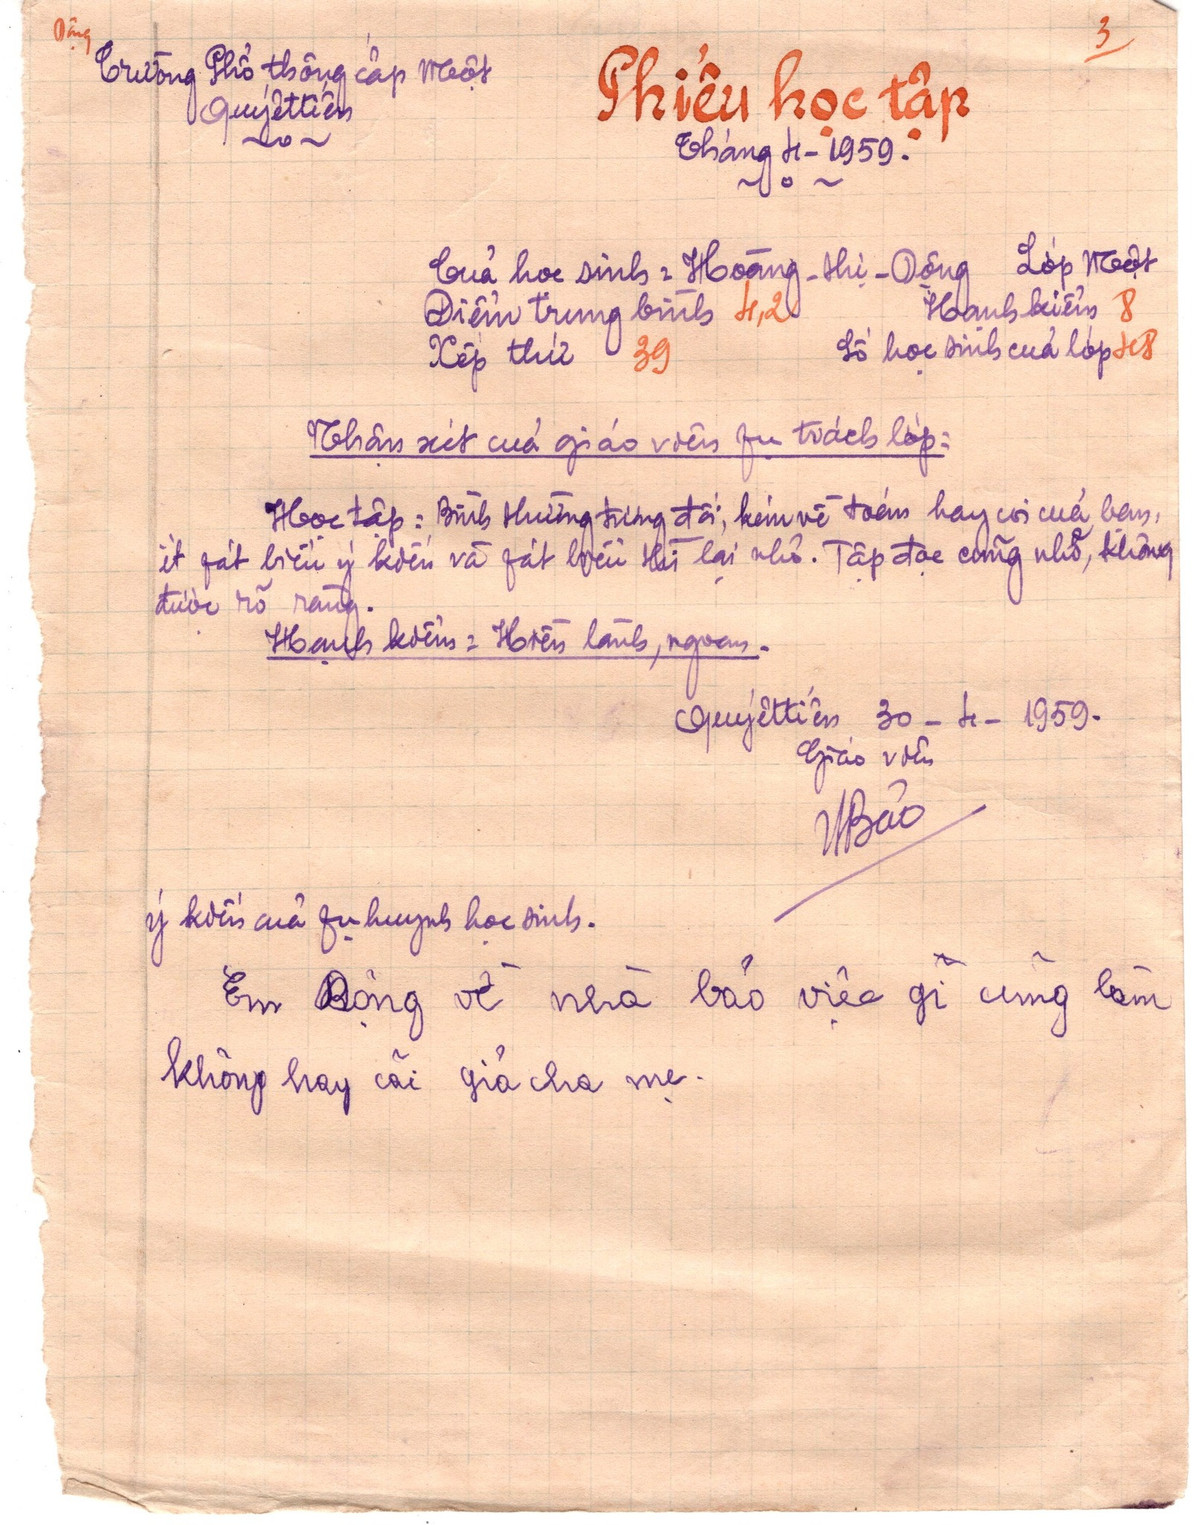 Động
3
Trường Phổ thông cấp Một
Quyết tiến
Phiếu học tập
Tháng 4 - 1959.
Của học sinh = Hoàng - thị - Động Lớp Một
Điểm trung bình 4,2 Hạnh kiểm 8
Xếp thứ 39 Số học sinh của lớp 48
Nhận xét của giáo viên fụ trách lớp:
Học tập: Bình thường tương đối, kém về toán hay coi của bạn,
ít fát biểu ý kiến và fát biểu thì lại nhỏ. Tập đọc cũng nhỏ, không
được rõ ràng.
Hạnh kiểm = Hiền lành, ngoan.
Quyết tiến 30 - 4 - 1959.
Giáo viên
Bảo
ý kiến của fụ huynh học sinh.
Em Động về nhà bảo việc gì cũng làm
không hay cãi giả cha mẹ.